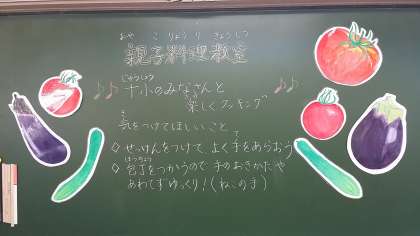 おや こ りょうり きょうしつ
親子料理教室
じゅうしょう
♪♪ 十小のみなさんと ♪♪
楽しくクッキング
き
気をつけてほしいこと
て
◇ せっけんをつけて よく手をあらおう
ほうちょう
◇ 包丁をつかうので 手のおきかたや
あわてずゆっくり！（ねこの手）